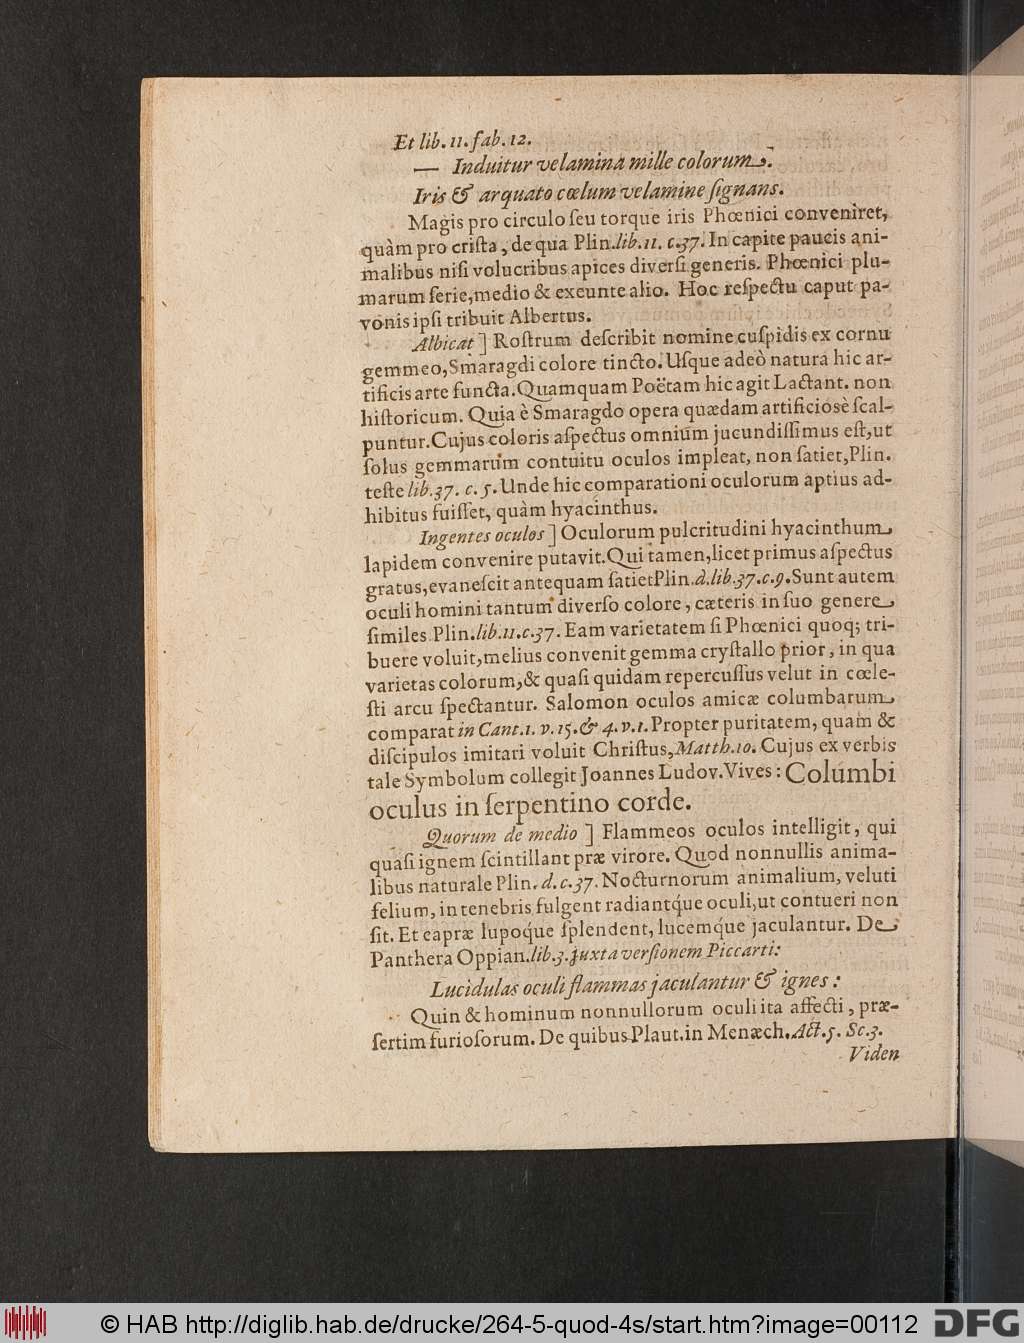 Et lib. 11. fab. 12.
— Induitur velamina mille colorum.
Iris & arquato cœlum velamine ſignans.
Magis pro circulo ſeu torque iris Phœnici conveniret,
quàm pro criſta, de qua Plin. lib. 11. c. 37. In capite paucis ani-
malibus niſi volucribus apices diverſi generis. Phœnici plu-
marum ſerie, medio & exeunte alio. Hoc reſpectu caput pa-
vonis ipſi tribuit Albertus.
Albicat ] Roſtrum deſcribit nomine cuſpidis ex cornu
gemmeo, Smaragdi colore tincto. Uſque adeò natura hic ar-
tificis arte functa. Quamquam Poëtam hic agit Lactant. non
hiſtoricum. Quia è Smaragdo opera quædam artificiosè ſcal-
puntur. Cujus coloris aſpectus omnium jucundiſſimus eſt, ut
ſolus gemmarum contuitu oculos impleat, non ſatiet, Plin.
teſte lib. 37. c. 5. Unde hic comparationi oculorum aptius ad-
hibitus fuiſſet, quàm hyacinthus.
Ingentes oculos ] Oculorum pulcritudini hyacinthum
lapidem convenire putavit. Qui tamen, licet primus aſpectus
gratus, evaneſcit antequam ſatiet Plin. d. lib. 37. c. 9. Sunt autem
oculi homini tantum diverſo colore, cæteris in ſuo genere
ſimiles Plin. lib. 11. c. 37. Eam varietatem ſi Phœnici quoq; tri-
buere voluit, melius convenit gemma cryſtallo prior, in qua
varietas colorum, & quaſi quidam repercuſſus velut in cœle-
ſti arcu ſpectantur. Salomon oculos amicæ columbarum
comparat in Cant. 1. v. 15. & 4. v. 1. Propter puritatem, quam &
diſcipulos imitari voluit Chriſtus, Matth. 10. Cujus ex verbis
tale Symbolum collegit Joannes Ludov. Vives: Columbi
oculus in ſerpentino corde.
Quorum de medio ] Flammeos oculos intelligit, qui
quaſi ignem ſcintillant præ virore. Quod nonnullis anima-
libus naturale Plin. d. c. 37. Nocturnorum animalium, veluti
felium, in tenebris fulgent radiantq́ue oculi, ut contueri non
ſit. Et capræ lupoq́ue ſplendent, lucemq́ue jaculantur. De
Panthera Oppian. lib. 3. juxta verſionem Piccarti:
Lucidulas oculi flammas jaculantur & ignes:
Quin & hominum nonnullorum oculi ita affecti, præ-
ſertim furioſorum. De quibus Plaut. in Menæch. Act. 5. Sc. 3.
Viden
© HAB http://diglib.hab.de/drucke/264-5-quod-4s/start.htm?image=00112
DFG